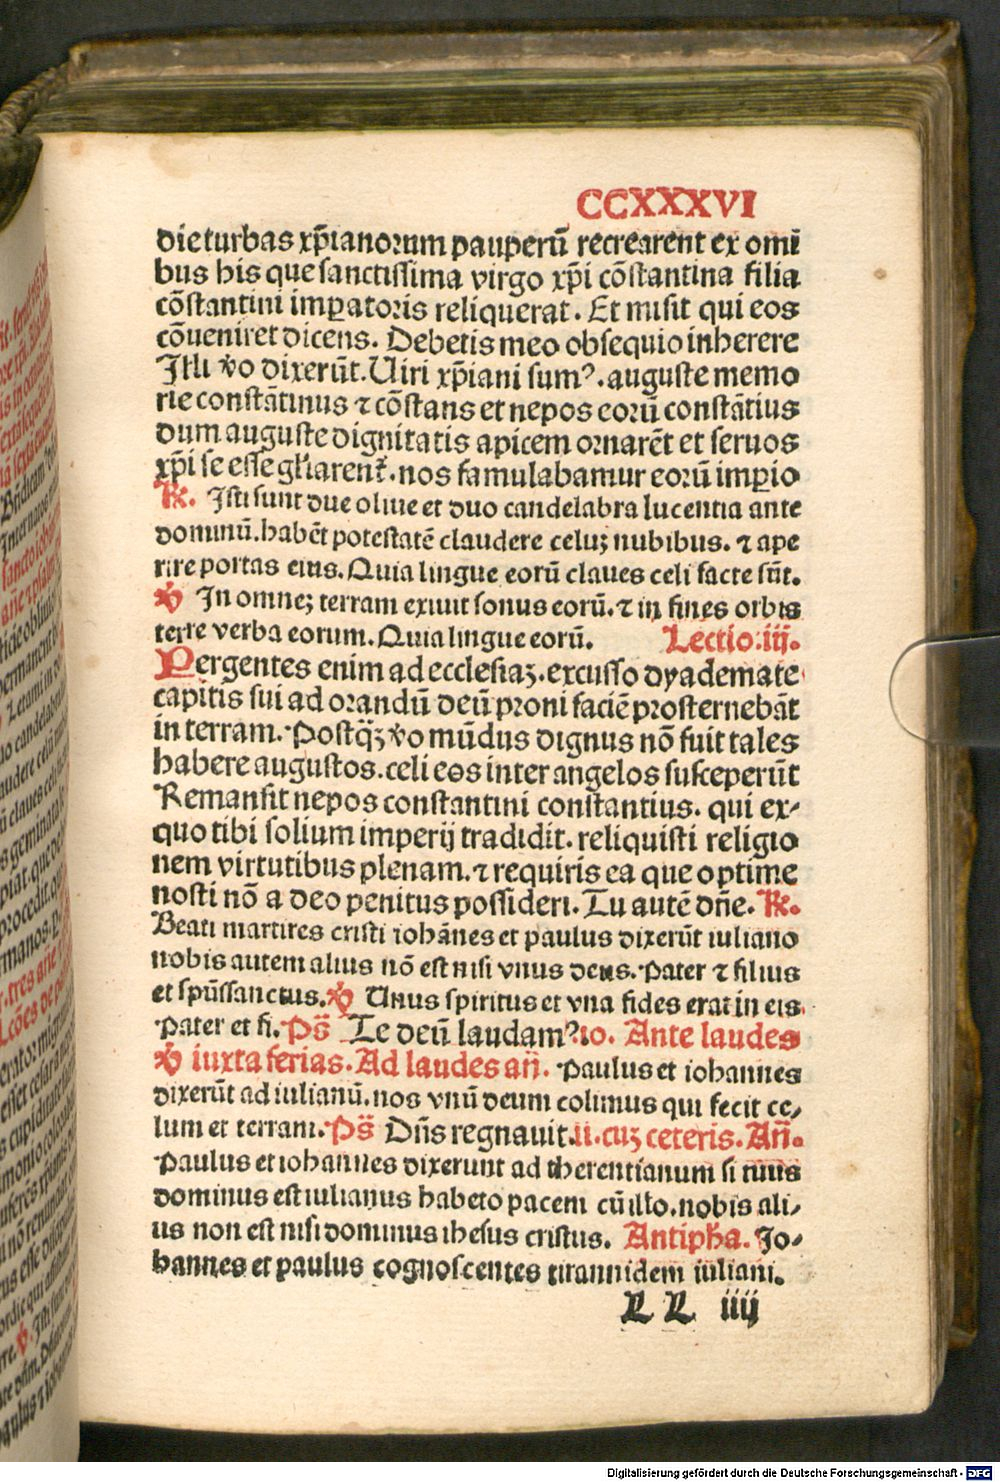 CCXXXVI
die turbas xp̄ianorum pauperū recrearent ex omī
bus his que sanctissima virgo xp̄i cōstantina filia
cōstantini imꝑatoris reliquerat. Et misit qui eos
cōueniret dicens. Debetis meo obsequio inherere
Illi v̉o dixerūt. Uiri xp̄iani sumꝰ. auguste memo
rie constātinus ⁊ cōstans et nepos eorū constātius
dum auguste dignitatis apicem ornarēt et seruos
xp̄i se esse gl̓iarent᷑. nos famulabamur eorū imꝑio
℟. Isti sunt due oliue et duo candelabra lucentia ante
dominū. habēt potestatē claudere celuꝫ nubibus. ⁊ ape
rire portas eius. Quia lingue eorū claues celi facte sūt.
℣ In omneꝫ terram exiuit sonus eorū. ⁊ in fines orbis
terre verba eorum. Quia lingue eorū. Lectio.iij.
Pergentes enim ad ecclesiaꝫ. excusso dyademate
capitis sui ad orandū deū proni faciē prosternebāt
in terram. Postq̄ꝫ v̉o mūdus dignus nō fuit tales
habere augustos. celi eos inter angelos susceperūt
Remansit nepos constantini constantius. qui ex-
quo tibi solium imperij tradidit. reliquisti religio
nem virtutibus plenam. ⁊ requiris ea que optime
nosti nō a deo penitus possideri. Tu autē dn̄e. ℟.
Beati martires cristi iohānes et paulus dixerūt iuliano
nobis autem alius nō est nisi vnus deus. Pater ⁊ filius
et spūssanctus. ℣ Unus spiritus et vna fides erat in eis.
Pater et fi. Ps̄ Te deū laudamꝰ. io. Ante laudes
℣ iuxta ferias. Ad laudes an̄. Paulus et iohannes
dixerūt ad iulianū. nos vnū deum colimus qui fecit ce-
lum et terram. Ps̄ Dn̄s regnauit. ii. cuꝫ ceteris. An̄.
Paulus et iohannes dixerunt ad therentianum si tuus
dominus est iulianus habeto pacem cū illo. nobis ali-
us non est nisi dominus ihesus cristus. Antiph̓a. Jo-
hannes et paulus cognoscentes tirannidem iuliani.
LL iiij
Digitalisierung gefördert durch die Deutsche Forschungsgemeinschaft - DFG